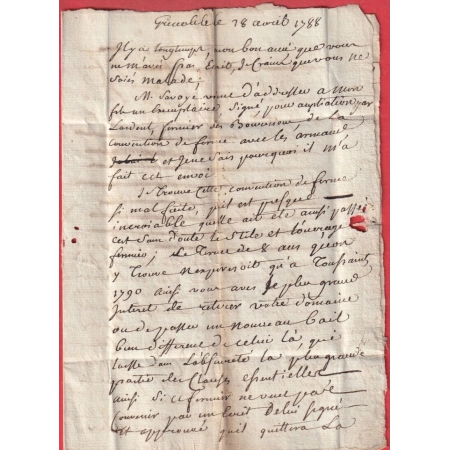 Grenoble le 28 avril 1788
Il y a longtemps mon bon ami que vous
ne m'avés pas Ecrit, de crainte que vous ne
soiés malade;
M. Savoye vient d'addresser a mon
fils un Exemplaire Signé pour ampliation par
fermier des de la
convention de ferme avec les
et je ne sais pourquoi il m'a
fait cet envoi
Je trouve Cette convention de ferme
si mal faite, qu'il est presque
incroiable quelle ait eté ainsi passée
cest sans doute le Stile et l'ouvrage
fermier; Le Terme de 8 ans qu'on
y Trouve n'expireroit qu'a Toussaint
1790 ainsi vous avés le plus grand
Interet de retirer votre domaine
ou de passer un nouveau bail
bien different de celui là, qui
laisse dans la plus grande
partie des Clauses Essentielles
ainsi Si ce fermier ne veut pas
Convenir par un Ecrit de lui signé
et approuvé qu'il quittera La